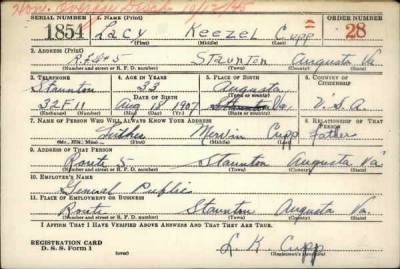 SERIAL NUMBER 1. NAME (Print) ORDER NUMBER
1854 Lacy Keezel Cupp 28
(First) (Middle) (Last)
2. ADDRESS (Print)
R.F.D. #5 Staunton Augusta Va.
(Number and street or R. F. D. number) (Town) (County) (State)
3. TELEPHONE 4. AGE IN YEARS 5. PLACE OF BIRTH 6. COUNTRY OF CITIZENSHIP
Staunton 33 Augusta
DATE OF BIRTH (Town or county)
32F11 Aug 18 1907 Va. U.S.A.
(Exchange) (No.) (Mo.) (Day) (Yr.) (State or country)
7. NAME OF PERSON WHO WILL ALWAYS KNOW YOUR ADDRESS 8. RELATIONSHIP OF THAT PERSON
Luther Mervin Cupp Father
(Mr., Mrs., Miss) (First) (Middle) (Last)
9. ADDRESS OF THAT PERSON
Route 5 Staunton Augusta Va
(Number and street or R. F. D. number) (Town) (County) (State)
10. EMPLOYER'S NAME
General Public
11. PLACE OF EMPLOYMENT OR BUSINESS
Route Staunton Augusta Va.
(Number and street or R. F. D. number) (Town) (County) (State)
I AFFIRM THAT I HAVE VERIFIED ABOVE ANSWERS AND THAT THEY ARE TRUE.
REGISTRATION CARD
D. S. S. Form 1 L. K. Cupp